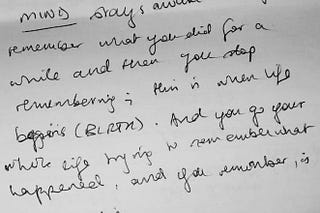 MIND stays awake
remember what you did for a
while and then you stop
remembering; this is when life
begins (BIRTH). And you go your
whole life trying to remember what
happened, and you remember, is